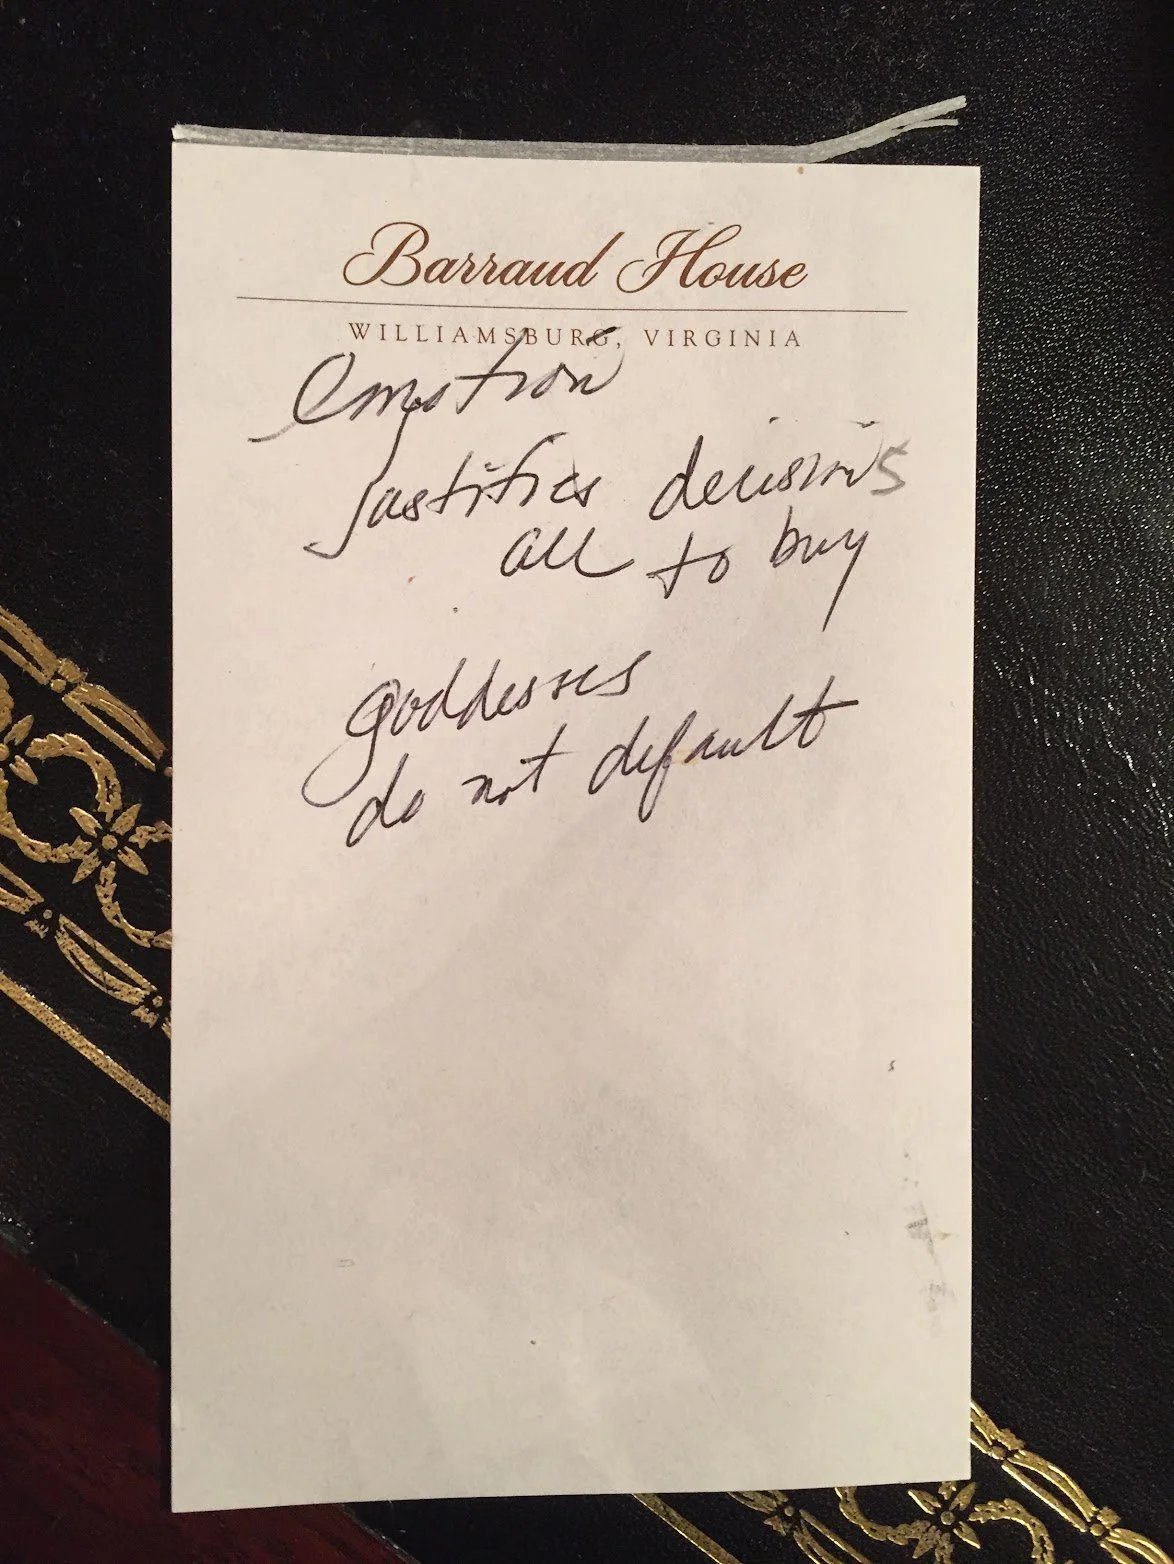 Barraud House
WILLIAMSBURG, VIRGINIA
Emotion
justifies decisions
all to buy
goddesses
do not default